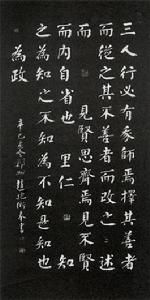 三人行必有我師焉擇其善者
而從之其不善者而改之 述
而 見賢思齊焉見不賢
而內自省也 里仁 知
之為知之不知為不知是知也
為政 辛巳 書